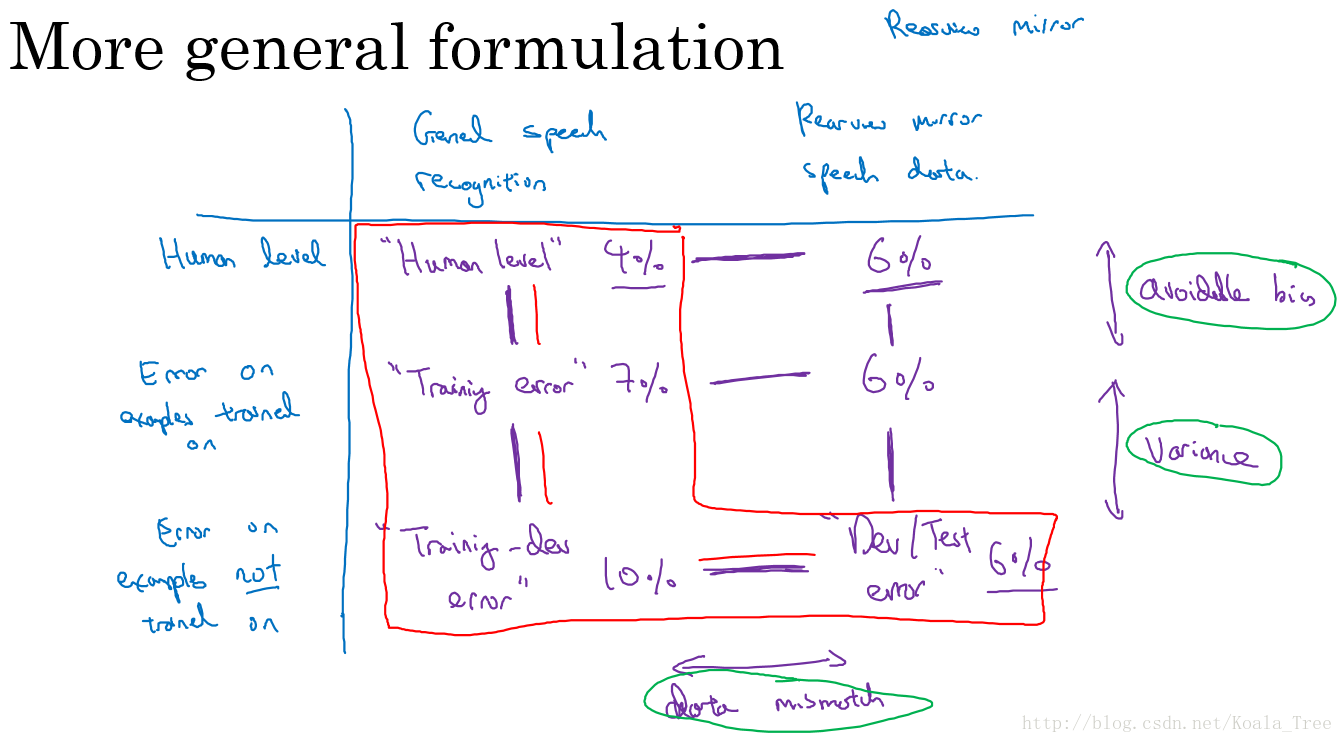 More general formulation
Rearview mirror
General speech
recognition
Rearview mirror
speech data.
Human level
"Human level" 4%
6%
avoidable bias
Error on
examples trained
on
"Training error" 7%
6%
Variance
Error on
examples not
trained on
"Training-dev
error"
10%
"Dev/Test
error"
6%
data mismatch
http://blog.csdn.net/Koala_Tree